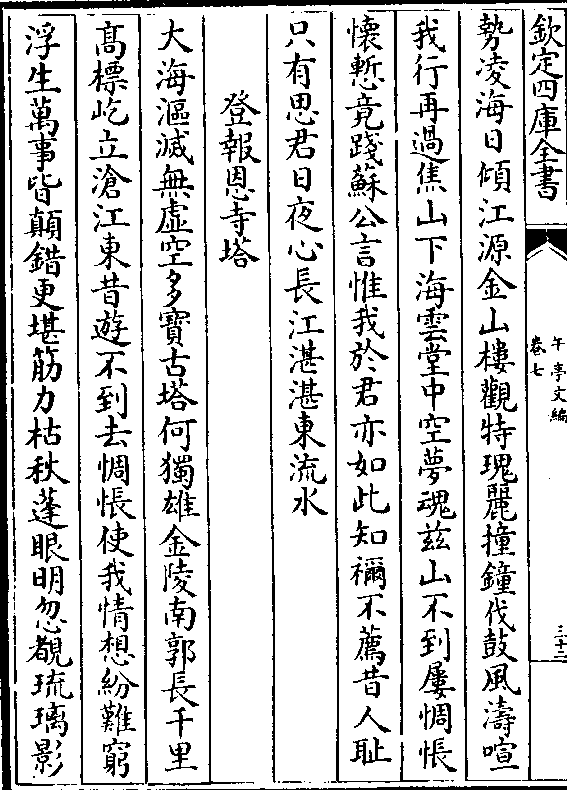 欽定四庫全書
午亭文編
卷七
三十二
勢凌海日傾江源金山樓觀特瑰麗撞鐘伐鼓風濤喧
我行再過焦山下海雲堂中空夢魂茲山不到屢惆悵
懷慙竟踐蘇公言惟我於君亦如此知禰不薦昔人恥
只有思君日夜心長江湛湛東流水
登報恩寺塔
大海漚滅無虛空多寶古塔何獨雄金陵南郭長千里
髙標屹立滄江東昔遊不到去惆悵使我情想紛難窮
浮生萬事皆顛錯更堪筋力枯秋蓬眼明忽覩琉璃影